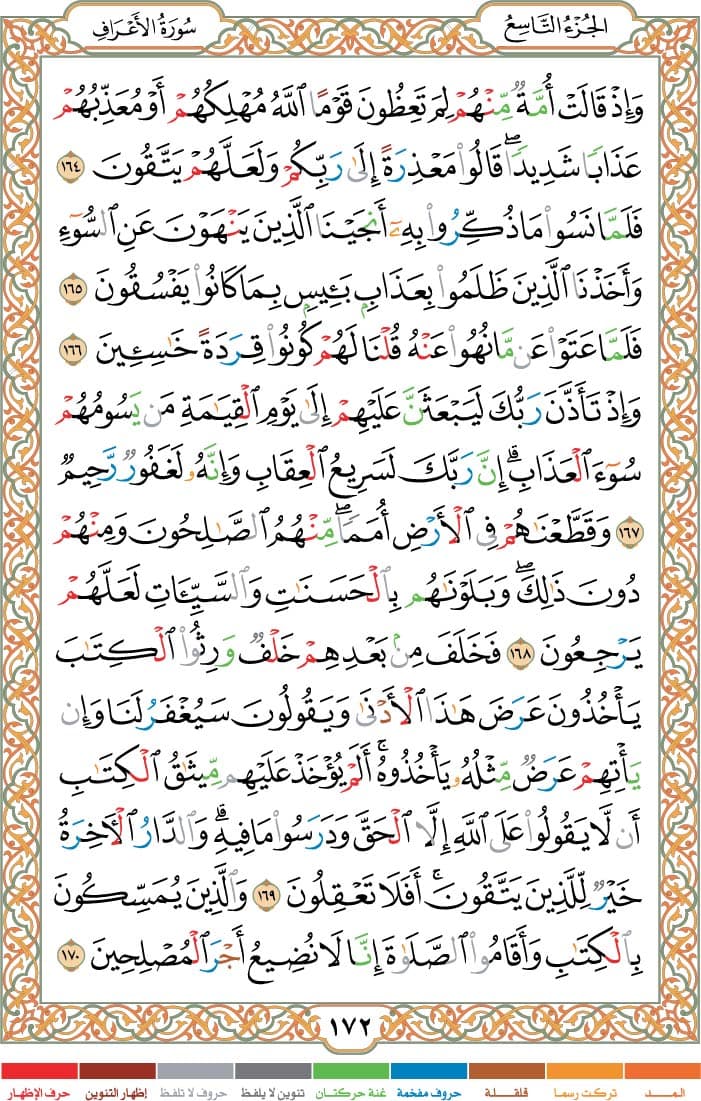 الجُزْءُ التَّاسِعُ
سُورَةُ الأَعْرَافِ
وَإِذْ قَالَتْ أُمَّةٌ مِّنْهُمْ لِمَ تَعِظُونَ قَوْمًا ٱللَّهُ مُهْلِكُهُمْ أَوْ مُعَذِّبُهُمْ
عَذَابًا شَدِيدًا ۖ قَالُوا۟ مَعْذِرَةً إِلَىٰ رَبِّكُمْ وَلَعَلَّهُمْ يَتَّقُونَ ١٦٤
فَلَمَّا نَسُوا۟ مَا ذُكِّرُوا۟ بِهِۦٓ أَنجَيْنَا ٱلَّذِينَ يَنْهَوْنَ عَنِ ٱلسُّوٓءِ
وَأَخَذْنَا ٱلَّذِينَ ظَلَمُوا۟ بِعَذَابٍۭ بَـِٔيسٍۭ بِمَا كَانُوا۟ يَفْسُقُونَ ١٦٥
فَلَمَّا عَتَوْا۟ عَن مَّا نُهُوا۟ عَنْهُ قُلْنَا لَهُمْ كُونُوا۟ قِرَدَةً خَـٰسِـِٔينَ ١٦٦
وَإِذْ تَأَذَّنَ رَبُّكَ لَيَبْعَثَنَّ عَلَيْهِمْ إِلَىٰ يَوْمِ ٱلْقِيَـٰمَةِ مَن يَسُومُهُمْ
سُوٓءَ ٱلْعَذَابِ ۗ إِنَّ رَبَّكَ لَسَرِيعُ ٱلْعِقَابِ ۖ وَإِنَّهُۥ لَغَفُورٌ رَّحِيمٌ
١٦٧ وَقَطَّعْنَـٰهُمْ فِى ٱلْأَرْضِ أُمَمًا ۖ مِّنْهُمُ ٱلصَّـٰلِحُونَ وَمِنْهُمْ
دُونَ ذَٰلِكَ ۖ وَبَلَوْنَـٰهُم بِٱلْحَسَنَـٰتِ وَٱلسَّيِّـَٔاتِ لَعَلَّهُمْ
يَرْجِعُونَ ١٦٨ فَخَلَفَ مِنۢ بَعْدِهِمْ خَلْفٌ وَرِثُوا۟ ٱلْكِتَـٰبَ
يَأْخُذُونَ عَرَضَ هَـٰذَا ٱلْأَدْنَىٰ وَيَقُولُونَ سَيُغْفَرُ لَنَا وَإِن
يَأْتِهِمْ عَرَضٌ مِّثْلُهُۥ يَأْخُذُوهُ ۚ أَلَمْ يُؤْخَذْ عَلَيْهِم مِّيثَـٰقُ ٱلْكِتَـٰبِ
أَن لَّا يَقُولُوا۟ عَلَى ٱللَّهِ إِلَّا ٱلْحَقَّ وَدَرَسُوا۟ مَا فِيهِ ۗ وَٱلدَّارُ ٱلْـَٔاخِرَةُ
خَيْرٌ لِّلَّذِينَ يَتَّقُونَ ۗ أَفَلَا تَعْقِلُونَ ١٦٩ وَٱلَّذِينَ يُمَسِّكُونَ
بِٱلْكِتَـٰبِ وَأَقَامُوا۟ ٱلصَّلَوٰةَ إِنَّا لَا نُضِيعُ أَجْرَ ٱلْمُصْلِحِينَ ١٧٠
١٧٢
المــــد تركت رسما قلقـــلة حروف مفخمة غنة حركتان تنوين لا يلفظ حروف لا تلفظ إظهار التنوين حرف الإظهار